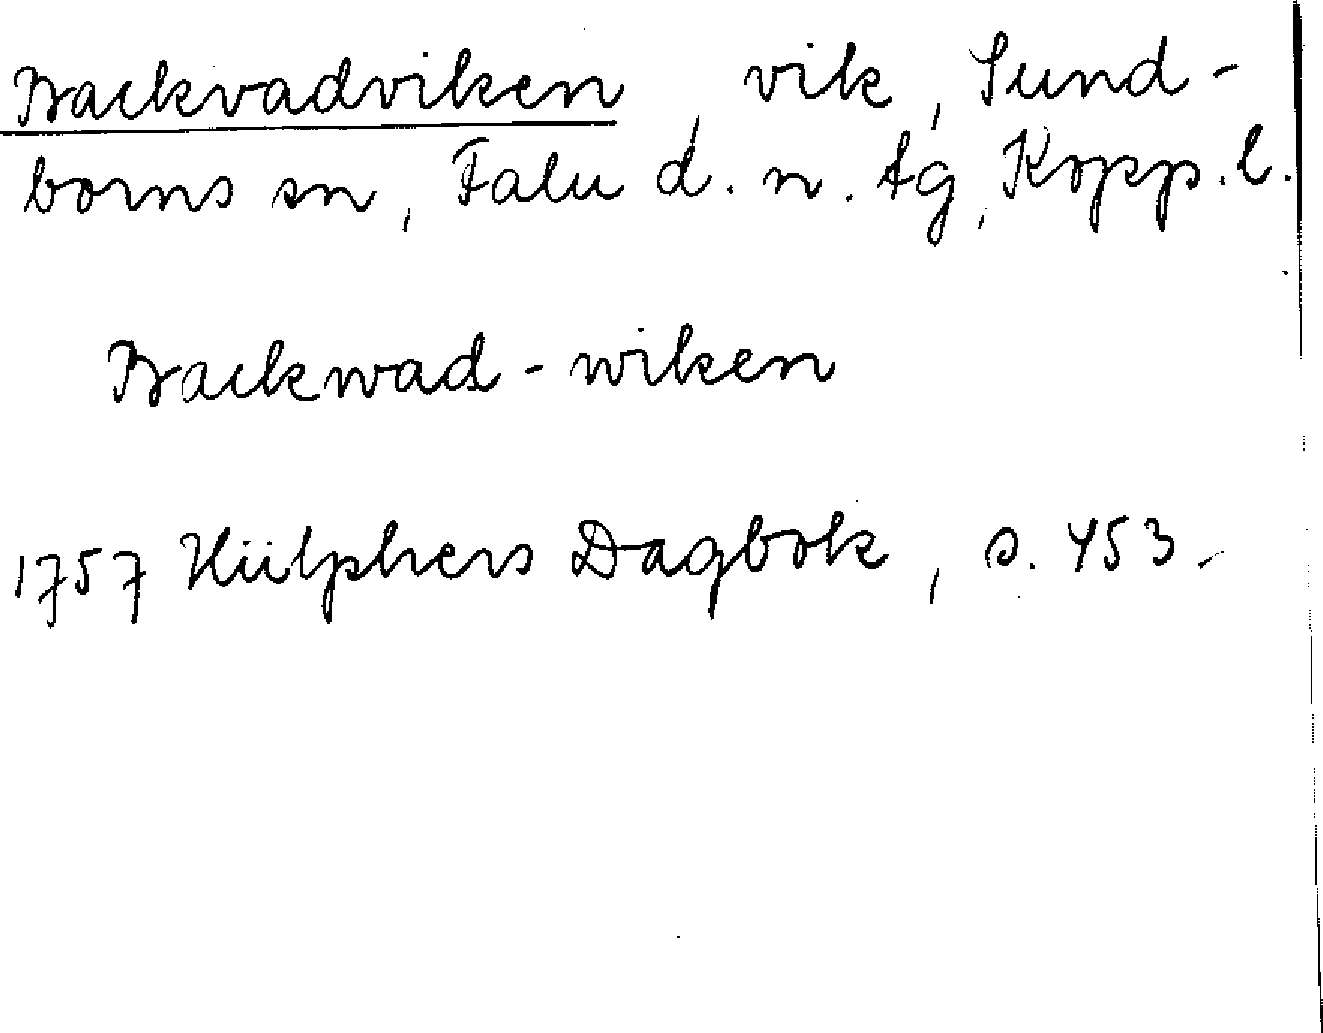 Backvadviken, vik, Sund-
borns sn, Falu d. n. tg, Kopp. l.
Backwad-wiken
1757 Hülphers Dagbok, s. 453.